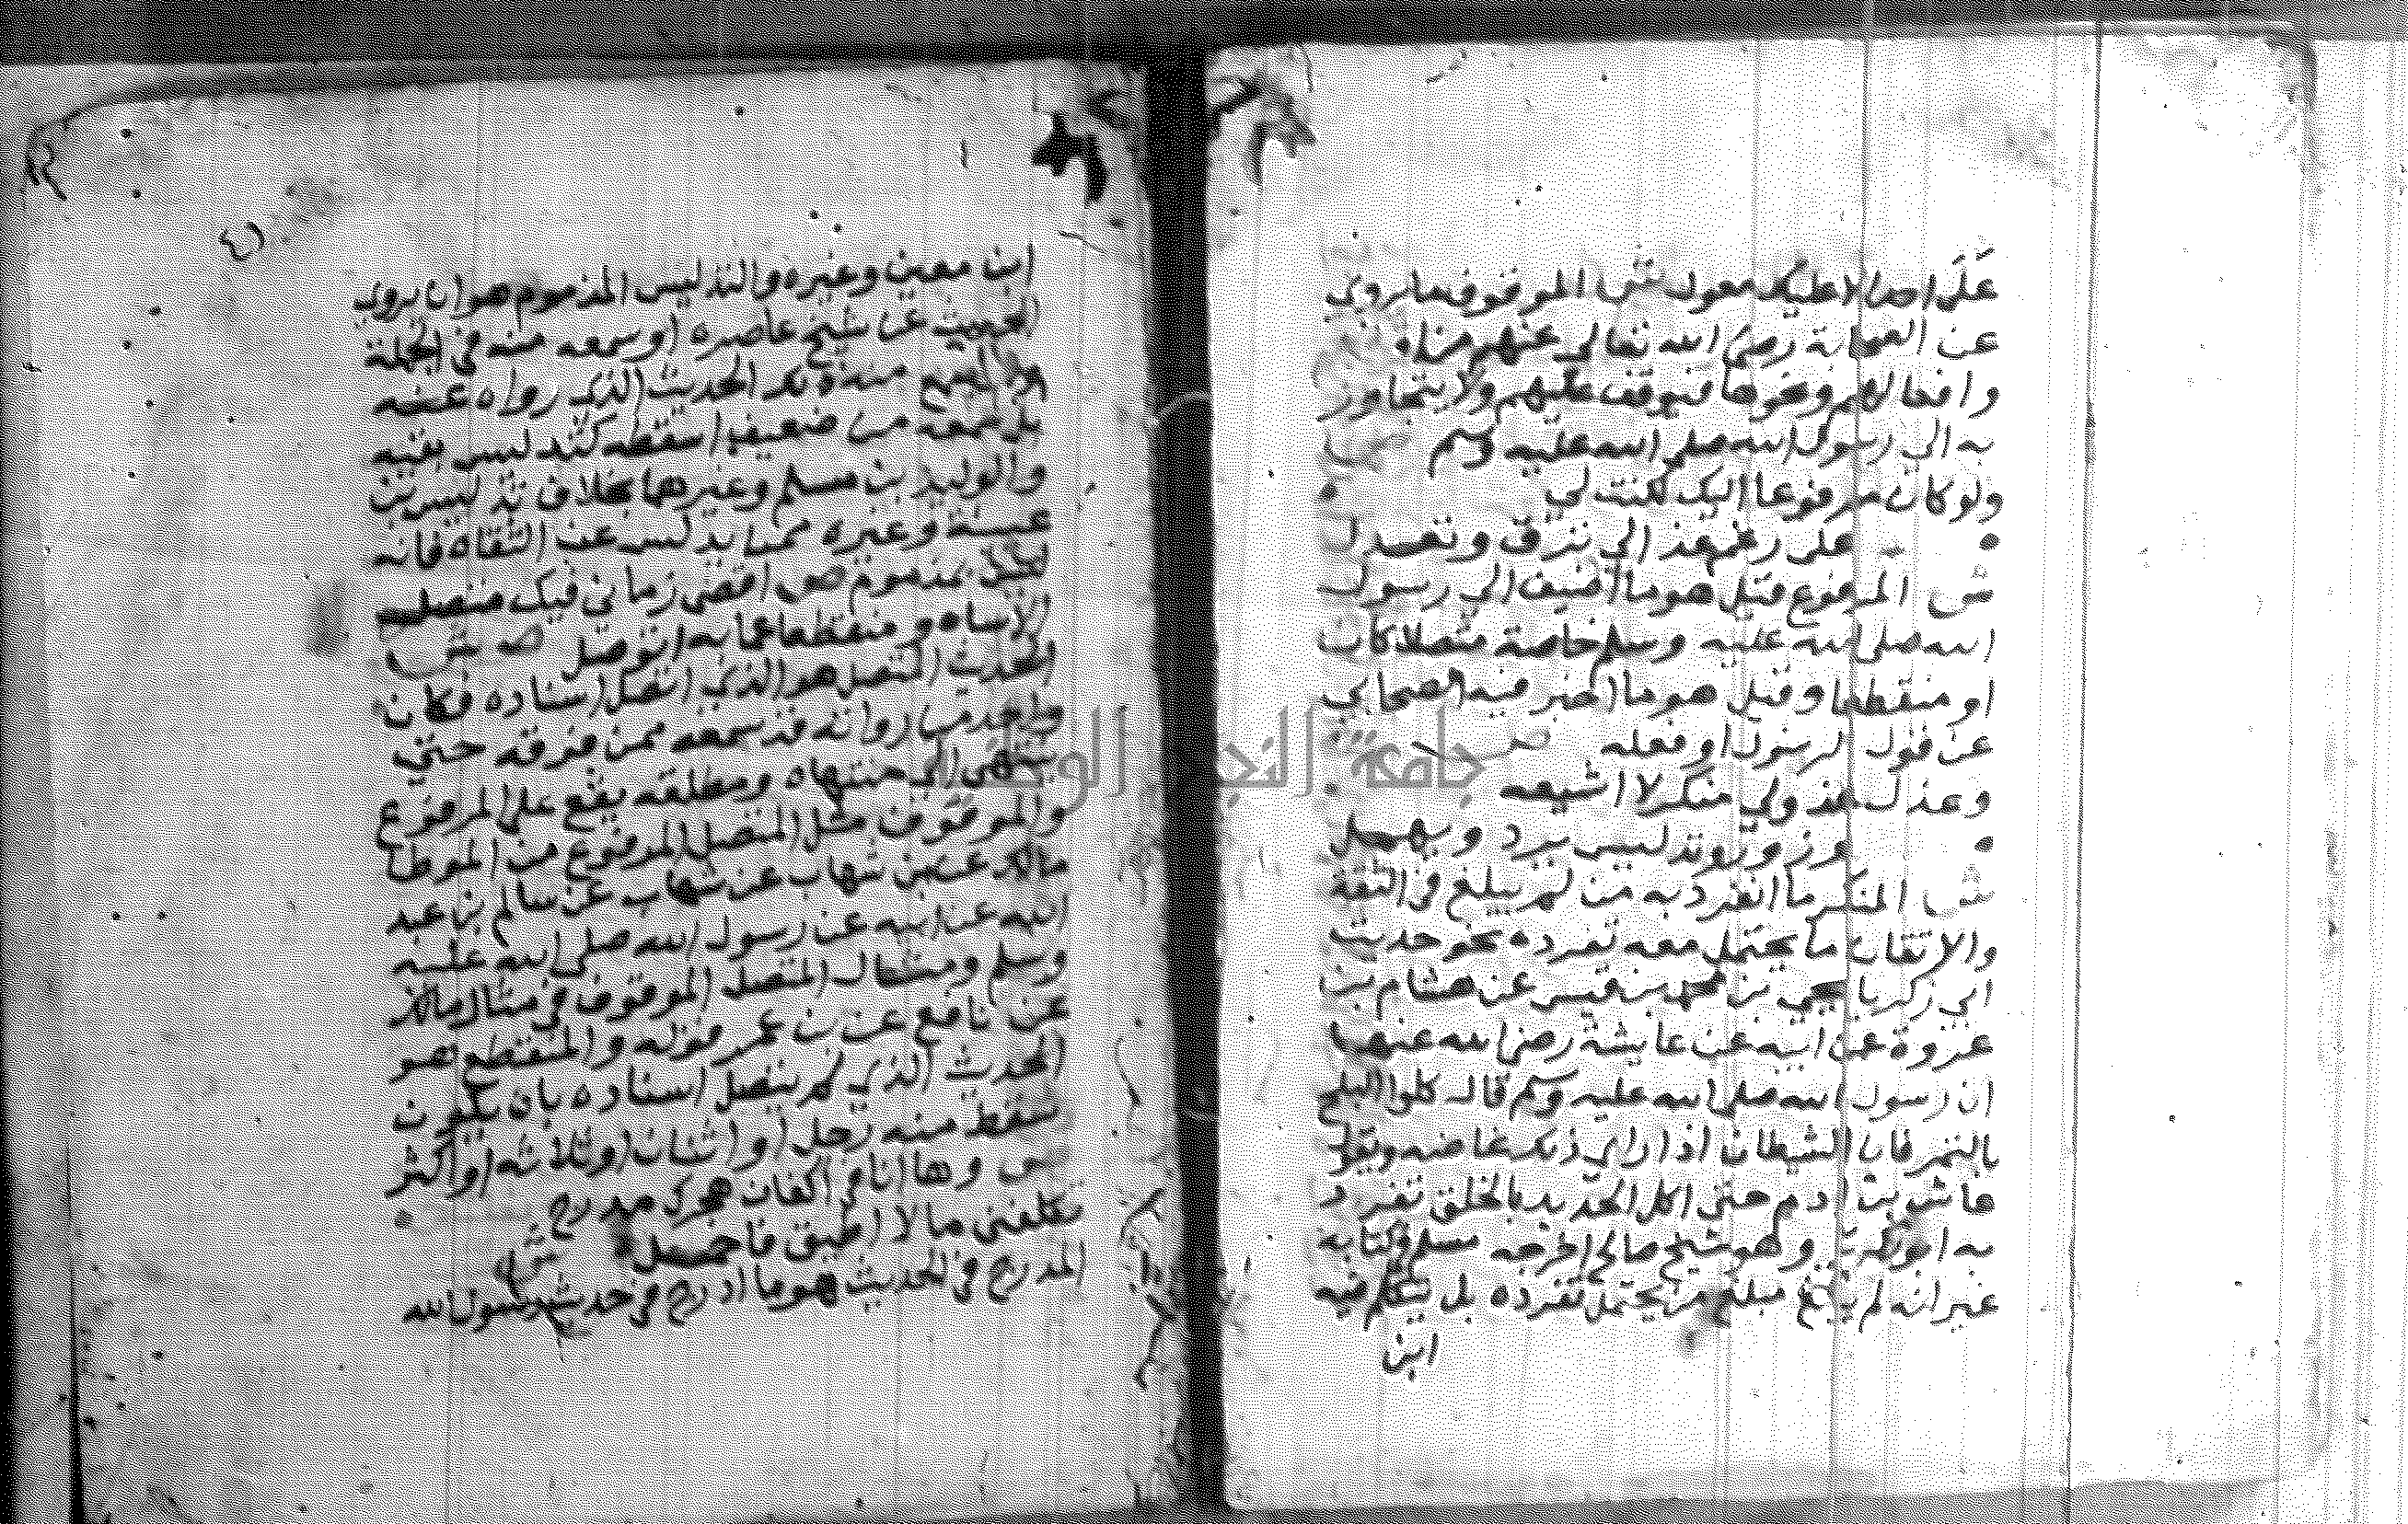 على احد الا عليك معول ش الموقوف ما روي
عن الصحابة رضي الله تعالى عنهم من
وافعالهم ونحوها فيوقف عليهم ولا يتجاوز
به الي رسول الله صلى الله عليه وسلم ص
ولو كان مرفوعا اليك لكنت لي
على رغم عذالي ترق وتعدل
ش المرفوع قيل هو ما اضيف الي رسول
الله صلى الله عليه وسلم خاصة متصلا كان
او منقطعا وقيل هو ما اخبر فيه الصحابي
عن قول الرسول او فعله ص
وعذل عذولي منكر لا اشيعه
وزور وتدليس يرد ويهمل
ش المنكر ما انفرد به من لم يبلغ في الثقة
والاتقان ما يحتمل معه تفرده نحو حديث
ابي زكريا يحيي بن محمد بن قيس عن هشام بن
عروة عن ابيه عن عايشة رضي الله عنها
ان رسول الله صلى الله عليه وسلم قال كلوا البلح
بالتمر فان الشيطان اذا راي ذلك غاضه ويقول
عاش بن ادم حتى اكل الجديد بالخلق تفرد
به ابو زكريا وهو شيخ صالح اخرجه مسلم في كتابه
غير انه لم يبلغ مبلغ من يحتمل تفرده بل تكلم فيه
ابن
١٢
٤١
ابن معين وغيره والتدليس المذموم هو ان يروي
الحديث عن شيخ عاصره او سمعه منه في الجملة
ولم يسمع منه ذلك الحديث الذي رواه عنه
بل سمعه من ضعيف اسقطه كتدليس بقية
والوليد بن مسلم وغيرهما بخلاف تدليس بن
عيينة وغيره ممن يدلس عن الثقاة فانه
ليس بمذموم ص اقضي زماني فيك متصل
الاساه ومنقطعا عما به اتوصل ص ش
الحديث المتصل هو الذي اتصل اسناده فكان
واحد من رواته قد سمعه ممن فوقه حتي
ينتهي الى منتهاه ومطلقه يقع على المرفوع
والموقوف مثل المتصل المرفوع من الموطا
مالك عن بن شهاب عن شهاب عن سالم بن عبد
الله عن ابيه عن رسول الله صلى الله عليه
وسلم ومثال المتصل الموقوف في مثال مالك
عن نافع عن بن عمر قوله والمنقطع هو
الحديث الذي لم يتصل اسناده بان يكون
سقط منه رجل او اثنان او ثلاثه او اكثر
ص وها انا في اكفان هجرك مدرج
تكلفني ما لا اطيق فاحمل ش
المدرج في الحديث هو ما ادرج في حديث رسول الله